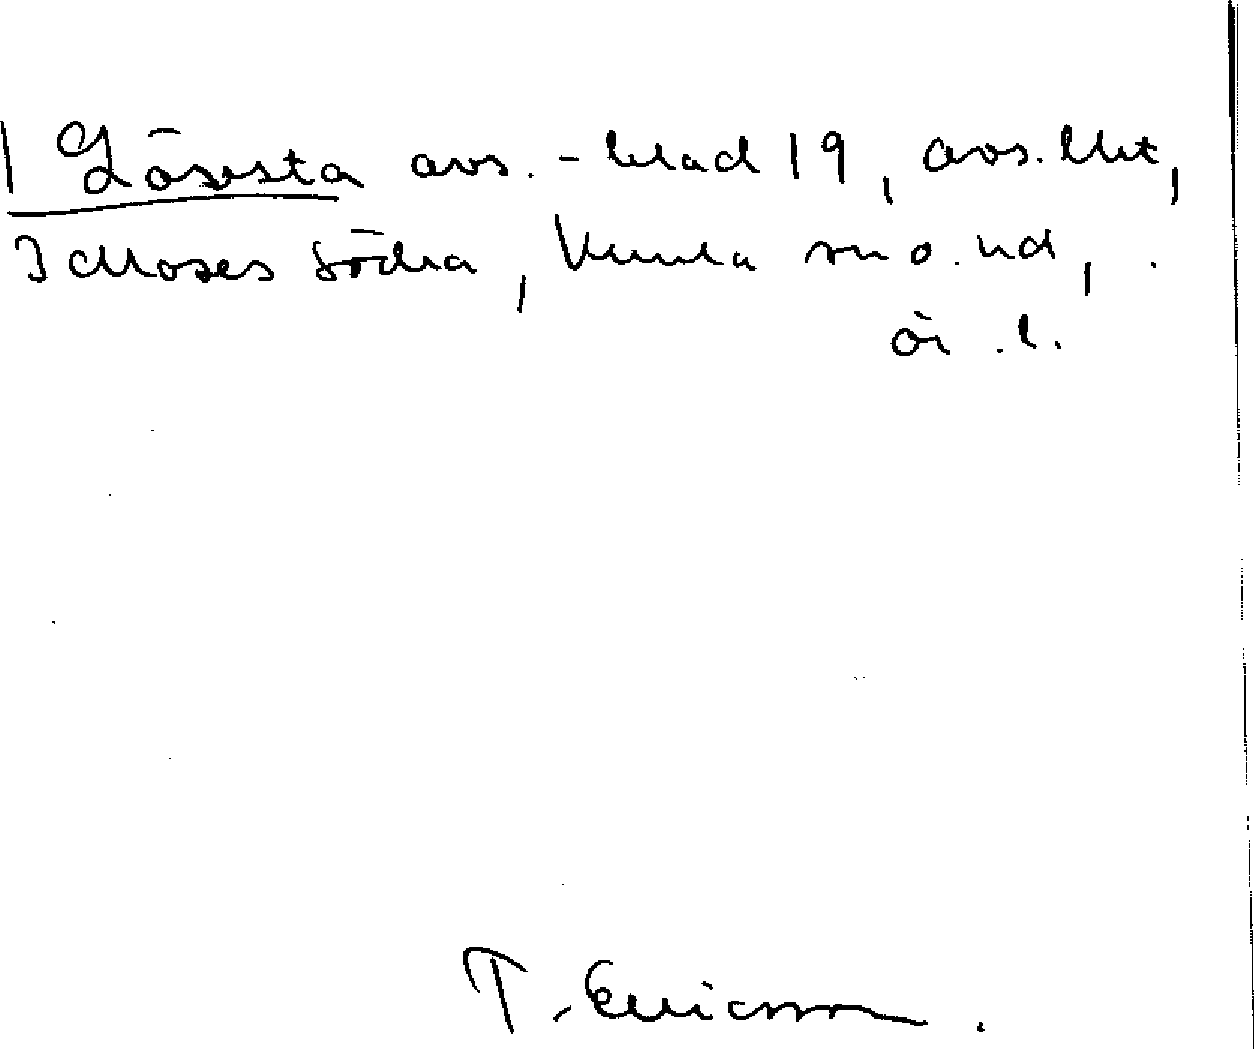 1 Lösesta avs. - blad 19, avs. Utit,
3 Moses södra, Kumla sn o. hd,
ör. l.
T. Ericsson.